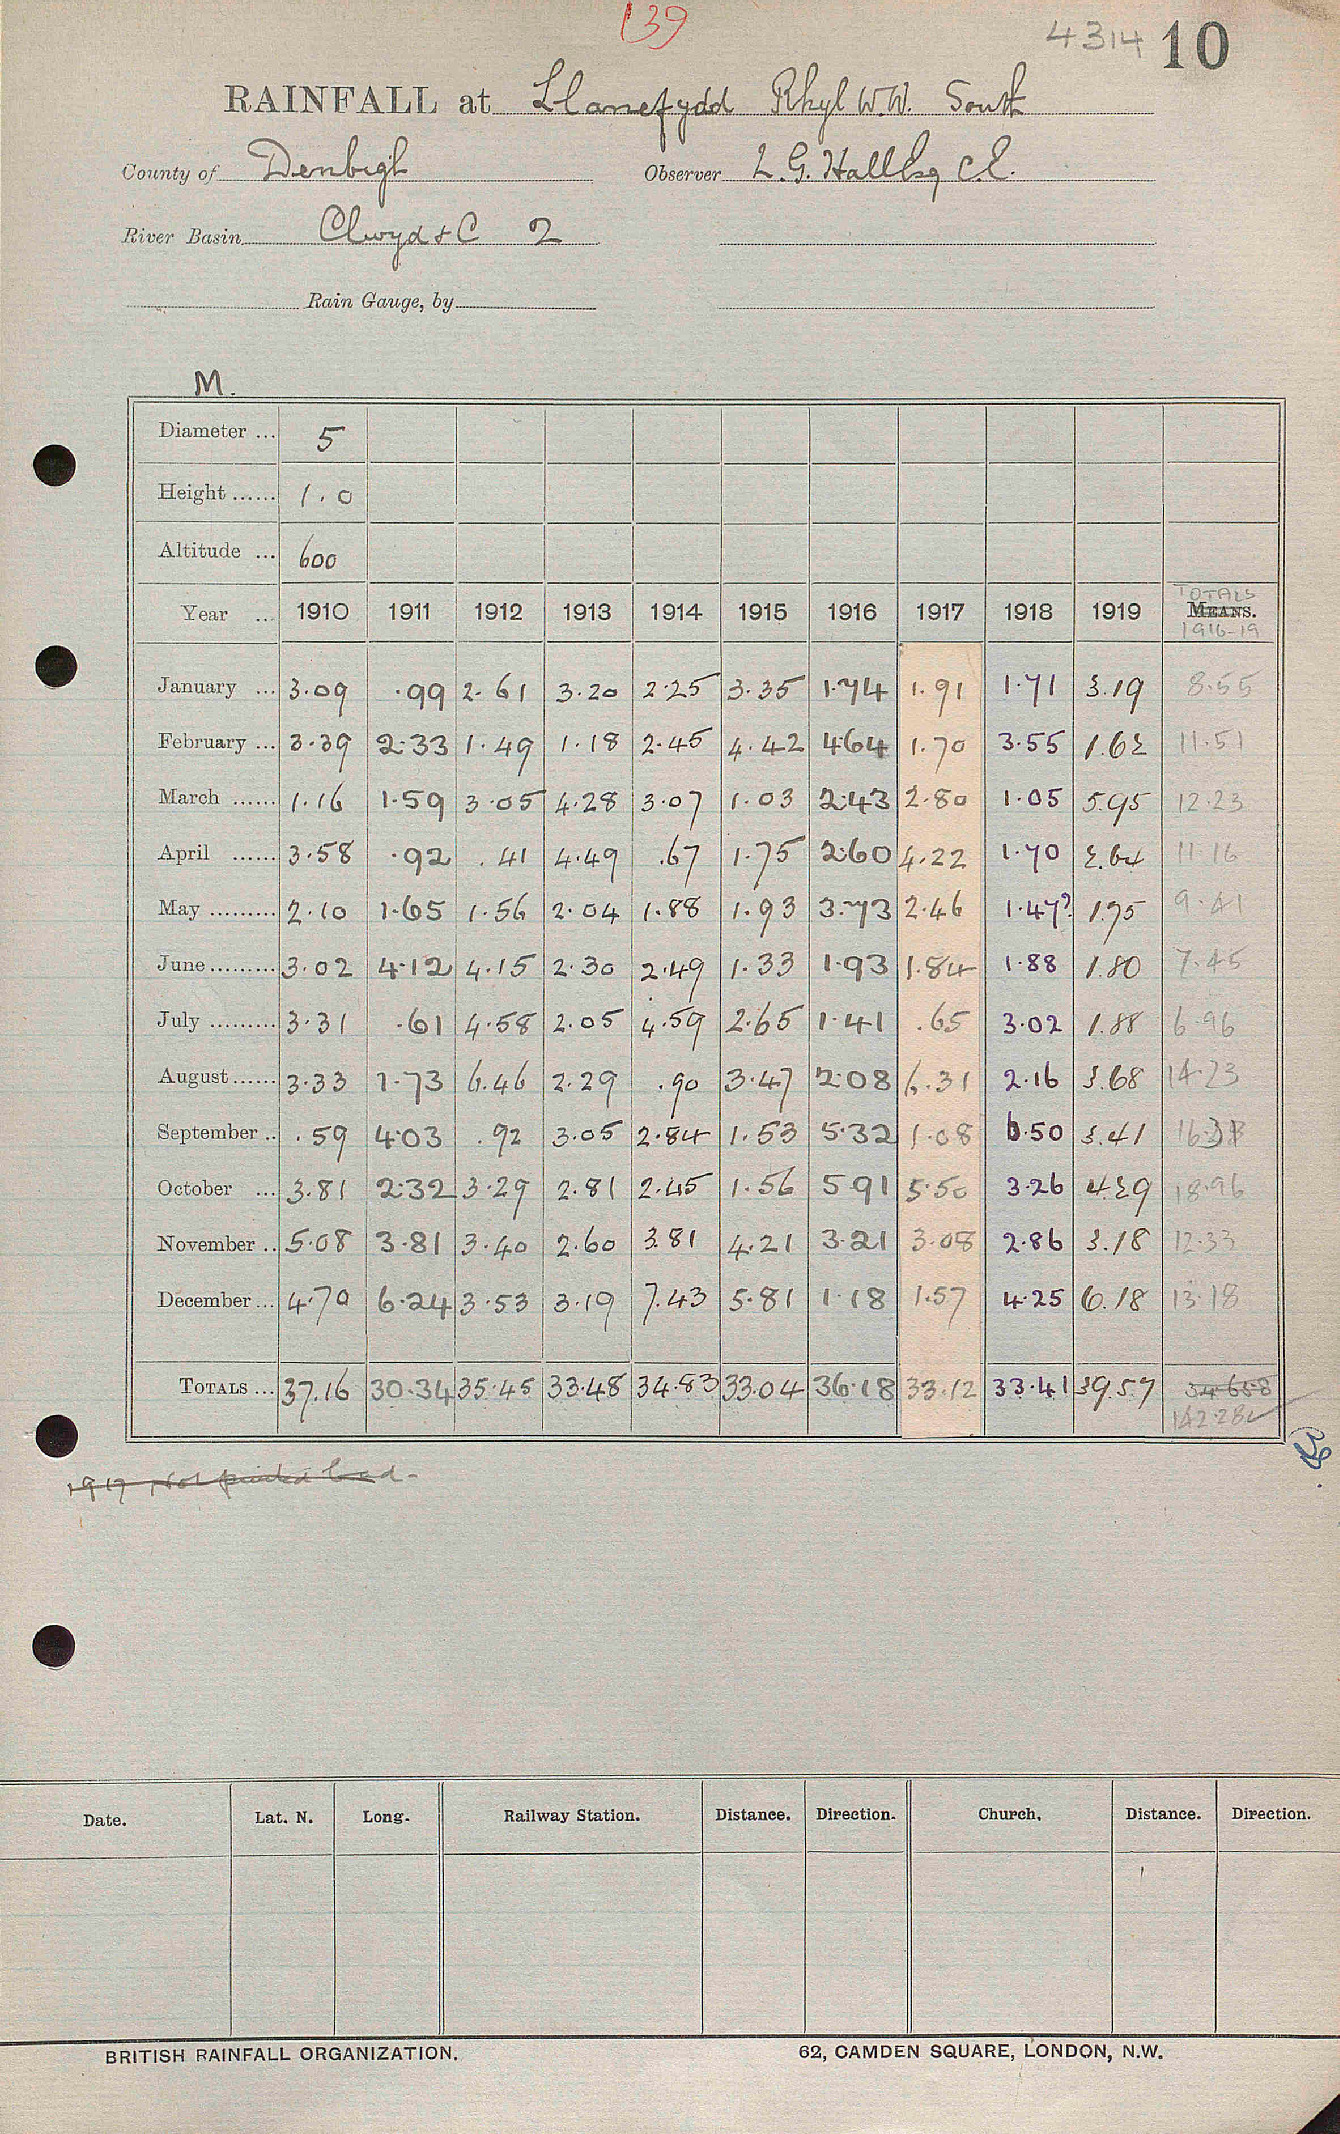 139
4314 10
RAINFALL at Llanefydd Rhyl W.W. South
County of Denbigh Observer L. G. Hall Esq C.E.
River Basin Clwyd & C 2
Rain Gauge, by
M.
Diameter ... 5
Height ...... 1.0
Altitude ... 600
TOTALS
Year ... 1910 1911 1912 1913 1914 1915 1916 1917 1918 1919 MEANS.
1916-19
January ... 3.09 .99 2.61 3.20 2.25 3.35 1.74 1.91 1.71 3.19 8.55
February ... 3.39 2.33 1.49 1.18 2.45 4.42 4.64 1.70 3.55 1.62 11.51
March ...... 1.16 1.59 3.05 4.28 3.07 1.03 2.43 2.80 1.05 5.95 12.23
April ...... 3.58 .92 .41 4.49 .67 1.75 2.60 4.22 1.70 2.64 11.16
May ......... 2.10 1.65 1.56 2.04 1.88 1.93 3.73 2.46 1.47? 1.75 9.41
June ......... 3.02 4.12 4.15 2.30 2.49 1.33 1.93 1.84 1.88 1.80 7.45
July ......... 3.31 .61 4.58 2.05 4.59 2.65 1.41 .65 3.02 1.88 6.96
August ...... 3.33 1.73 6.46 2.29 .90 3.47 2.08 6.31 2.16 3.68 14.23
September .. .59 4.03 .92 3.05 2.84 1.53 5.32 1.08 6.50 3.41 16.31
October ... 3.81 2.32 3.29 2.81 2.45 1.56 5.91 5.50 3.26 4.29 18.96
November .. 5.08 3.81 3.40 2.60 3.81 4.21 3.21 3.08 2.86 3.18 12.33
December ... 4.70 6.24 3.53 3.19 7.43 5.81 1.18 1.57 4.25 6.18 13.18
TOTALS ... 37.16 30.34 35.45 33.48 34.83 33.04 36.18 33.12 33.41 39.57
142.28
1917 Not printed
Date. Lat. N. Long. Railway Station. Distance. Direction. Church. Distance. Direction.
BRITISH RAINFALL ORGANIZATION. 62, CAMDEN SQUARE, LONDON, N.W.